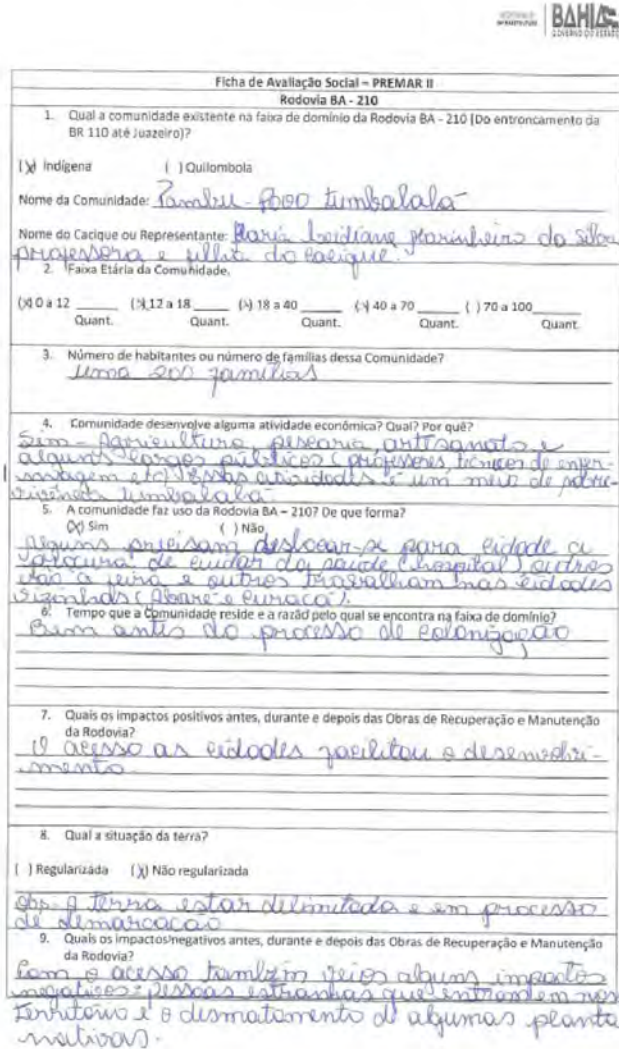 BAHIA
GOVERNO DO ESTADO
Ficha de Avaliação Social – PREMAR II
Rodovia BA - 210
1. Qual a comunidade existente na faixa de domínio da Rodovia BA - 210 (Do entroncamento da
BR 110 até Juazeiro)?
(X) Indígena ( ) Quilombola
Nome da Comunidade: Pambu - Povo Tumbalalá
Nome do Cacique ou Representante: Maria Leidiane Marinheiro da Silva
professora e filha do cacique.
2. Faixa Etária da Comunidade.
(X) 0 a 12 _____ (X) 12 a 18 _____ (X) 18 a 40 _____ (X) 40 a 70 _____ ( ) 70 a 100_____
Quant. Quant. Quant. Quant. Quant.
3. Número de habitantes ou número de famílias dessa Comunidade?
uma 200 famílias
4. Comunidade desenvolve alguma atividade econômica? Qual? Por quê?
Sim - Agricultura, pescaria, artesanato e
alguns cargos públicos (professores, técnicos de enfer-
magem etc) Essas atividades é um meio de sobre-
vivencia tumbalalá
5. A comunidade faz uso da Rodovia BA – 210? De que forma?
(X) Sim ( ) Não
Alguns precisam deslocar-se para cidade a
procura de cuidar da saúde (hospital) outros
vão a feira e outros trabalham nas cidades
vizinhas (Abaré e Curaçá).
6. Tempo que a Comunidade reside e a razão pelo qual se encontra na faixa de domínio?
Bem antes do processo de colonização
7. Quais os impactos positivos antes, durante e depois das Obras de Recuperação e Manutenção
da Rodovia?
O acesso as cidades facilitou o desenvolvi-
mento
8. Qual a situação da terra?
( ) Regularizada (X) Não regularizada
obs. A Terra estar delimitada e em processo
de demarcação
9. Quais os impactos negativos antes, durante e depois das Obras de Recuperação e Manutenção
da Rodovia?
Com o acesso também veios alguns impactos
negativos: pessoas estranhas que entram em nos
Território e o desmatamento d algumas planta
nativas.